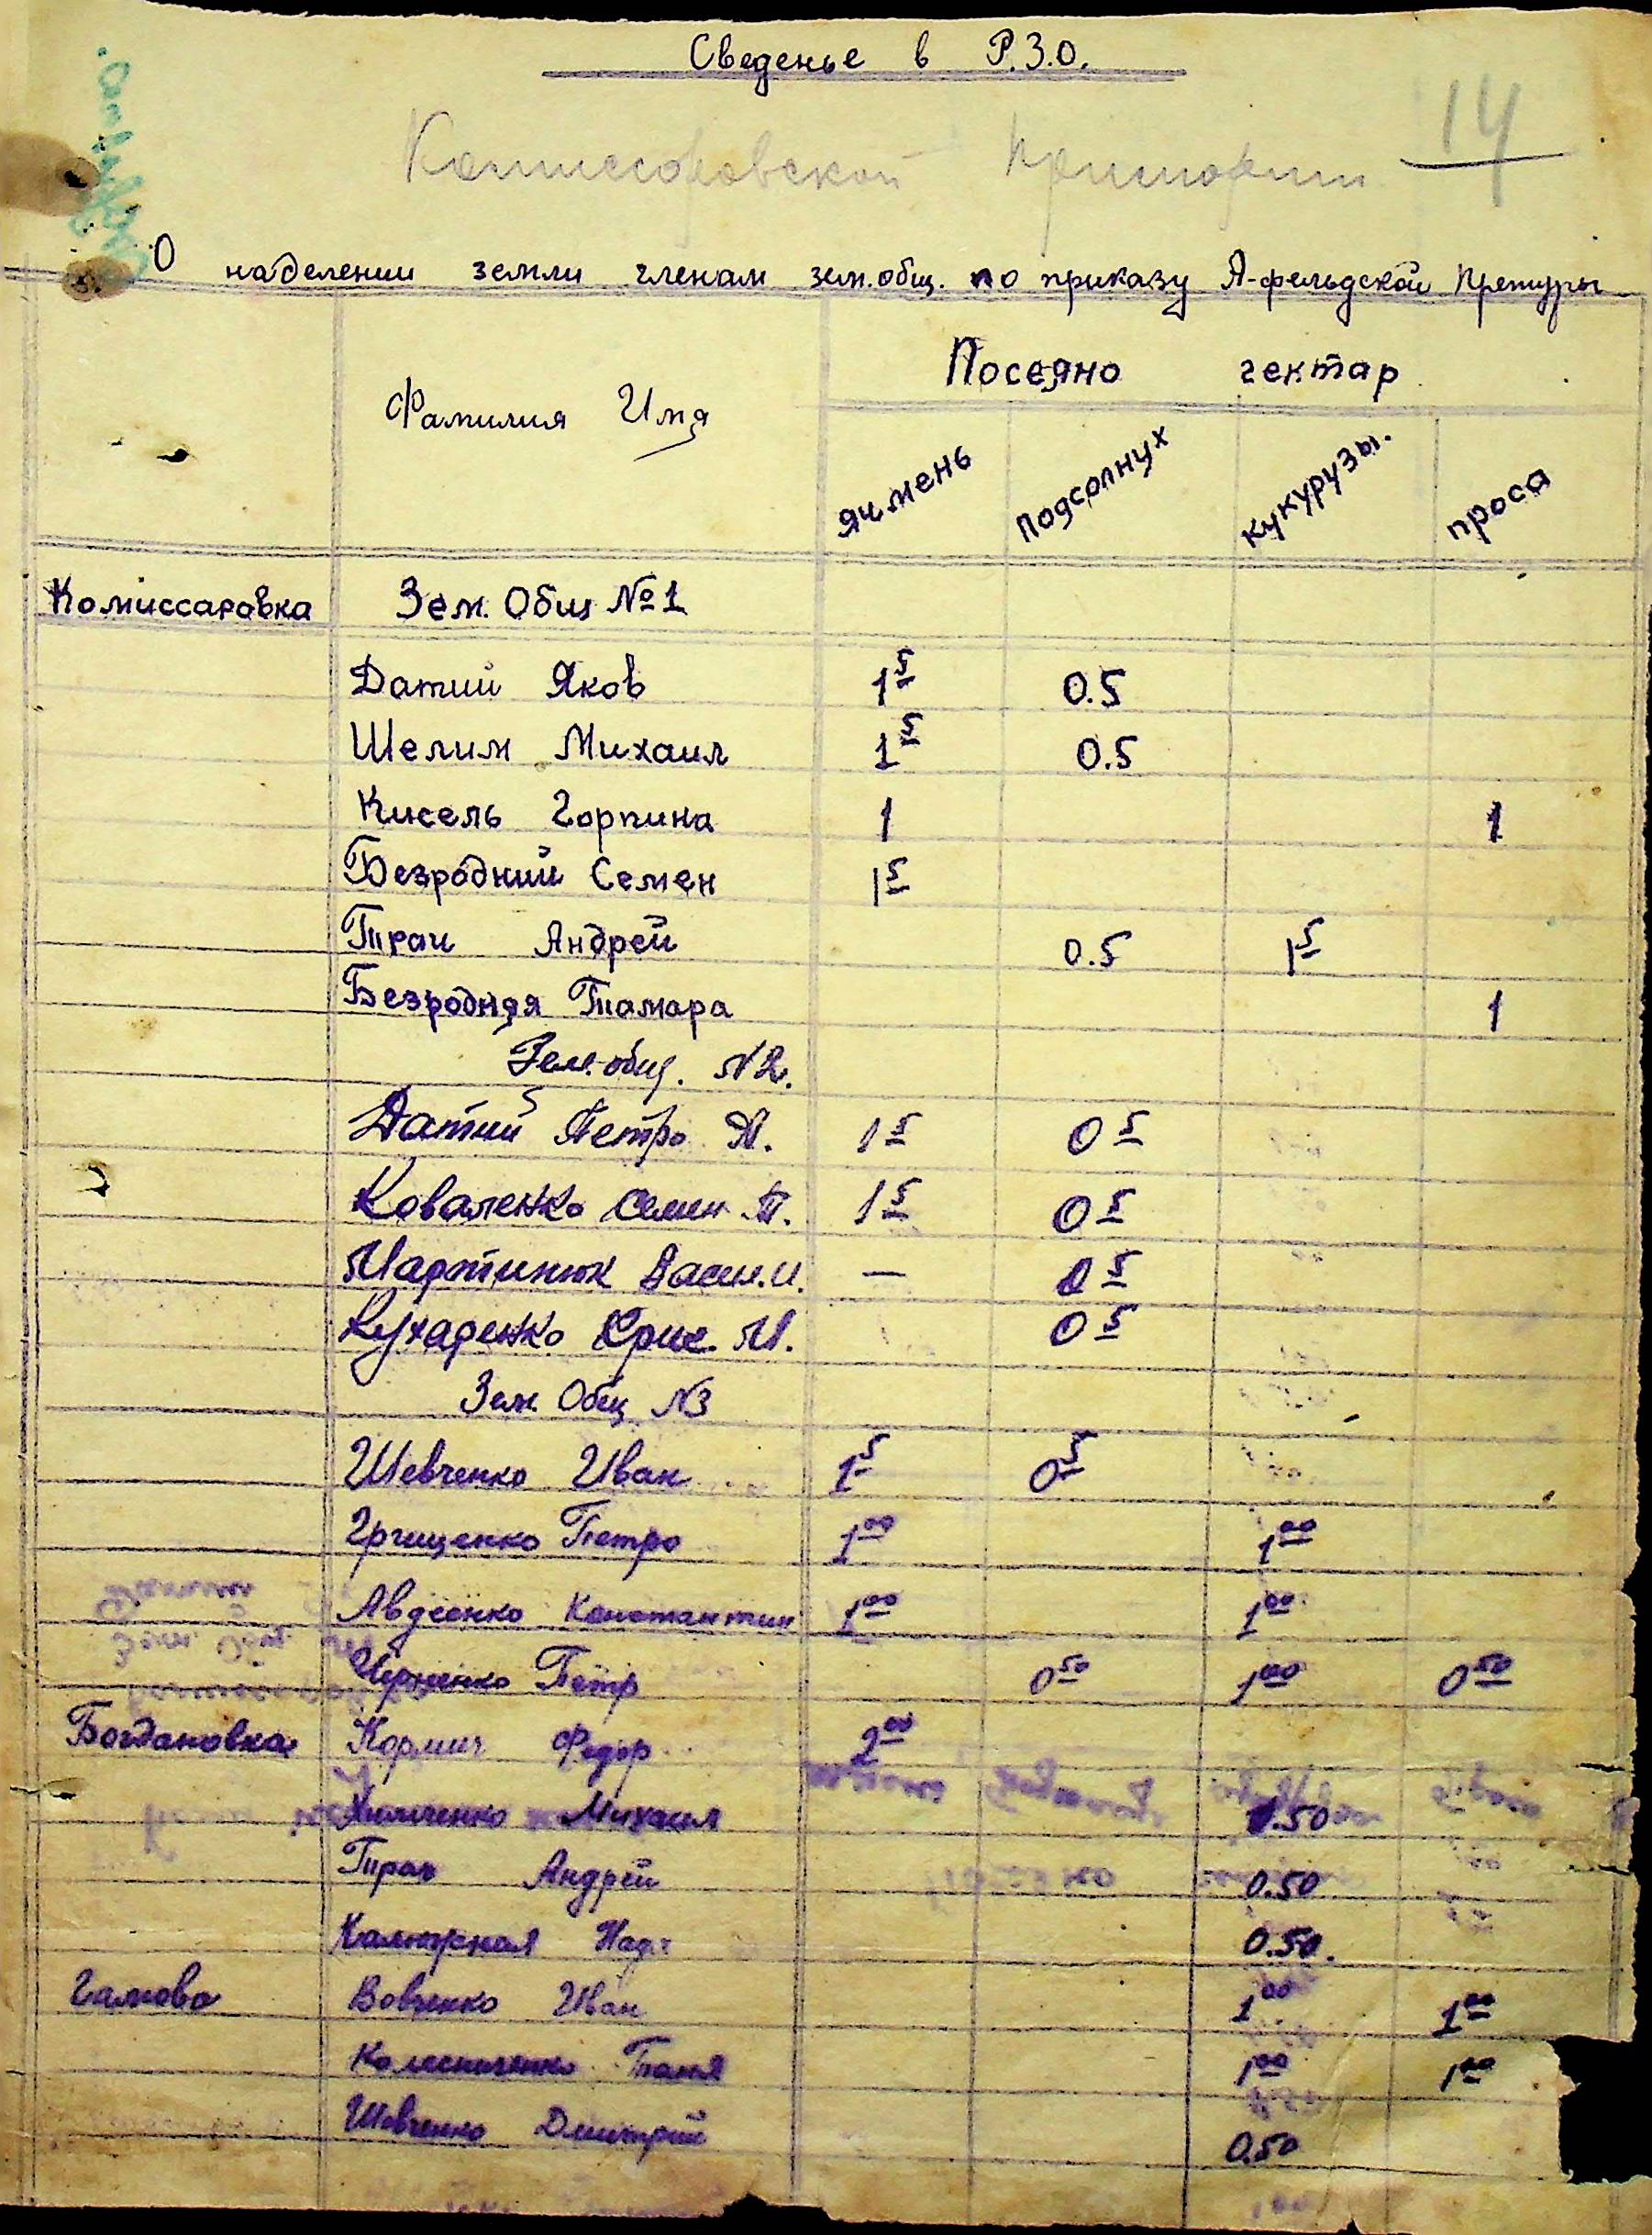 Сведенье в Р.З.О.
14
Комиссоровской Примарии
О наделении земли членам зем.общ. по приказу А-фельдской Претуры
Фамилия Имя Посеяно гектар
ячмень подсолнух кукурузы. проса
Комиссаровка Зем. Общ №1
Датий Яков 1 5 0.5
Шелим Михаил 1 5 0.5
Кисель Горпина 1 1
Безродний Семен 1 5
Ткач Андрей 0.5 1 5
Безродняя Тамара 1
Зем.общ. N2.
Датий Петро А. 1 5 0 5
Коваленко Семен Т. 1 5 0 5
Мартинюк Васил.И. — 0 5
Кухаренко Хрис. М. 0 5
Зем. Общ N3
Шевченко Иван 1 5 0 5
Грищенко Петро 1 00 1 00
Авдеенко Константин 1 00 1 00
Черненко Пётр 0 50 1 00 0 50
Богдановка Кормич Федор 2 00
Химченко Михаил 1.50
Ткач Андрей 0.50
Калюжная Над. 0.50.
Галково Вовченко Иван 1 00 1 00
Колесниченко Таня 1 00 1 00
Шевченко Дмитрий 0.50